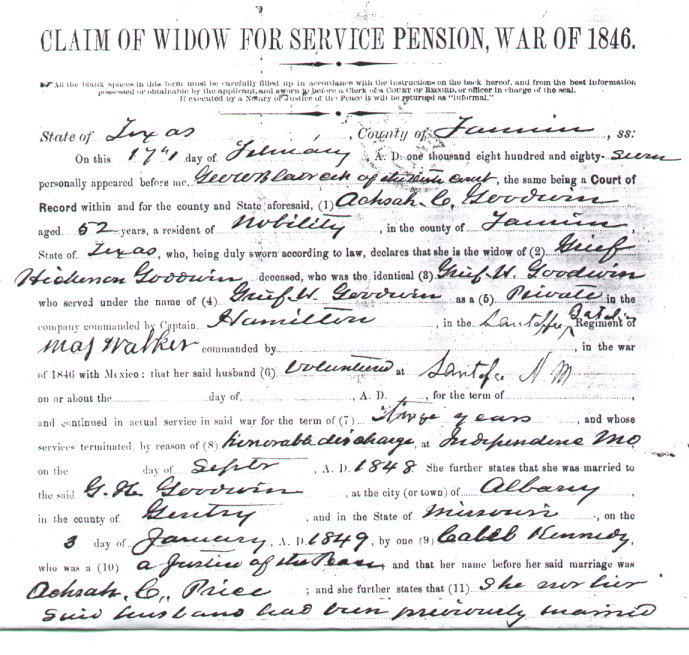 CLAIM OF WIDOW FOR SERVICE PENSION, WAR OF 1846.
All the blank spaces in this form must be carefully filled up in accordance with the instructions on the back hereof, and from the best information
possessed or obtainable by the applicant, and sworn to before a Clerk of a COURT OF RECORD, or officer in charge of the seal.
If executed by a Notary or Justice of the Peace it will be returned as "informal."
State of Texas, County of Fannin, ss:
On this 17th day of February, A. D. one thousand eight hundred and eighty-seven
personally appeared before me, court, the same being a Court of
Record within and for the county and State aforesaid, (1) Achsah C, Goodwin
aged 52 years, a resident of Nobility, in the county of Fannin,
State of Texas, who, being duly sworn according to law, declares that she is the widow of (2) Grief
Hickerson Goodwin deceased, who was the identical (3) Grief H. Goodwin
who served under the name of (4) Grief H. Goodwin as a (5) Private in the
company commanded by Captain Hamilton, in the Santaffe Batal Regiment of
Maj Walker commanded by, in the war
of 1846 with Mexico: that her said husband (6) Volunteered at Santafe N M
on or about the day of, A. D., for the term of,
and continued in actual service in said war for the term of (7) years, and whose
services terminated, by reason of (8) honorable discharge, at Independence Mo,
on the day of Septr, A. D. 1848. She further states that she was married to
the said G. H. Goodwin, at the city (or town) of Albany,
in the county of Gentry, and in the State of Missouri, on the
3 day of January, A. D. 1849, by one (9) Caleb Kennedy,
who was a (10) a Justice of the Peace, and that her name before her said marriage was
Achsah, C, Price; and she further states that (11) She nor her
said husband had been previously married